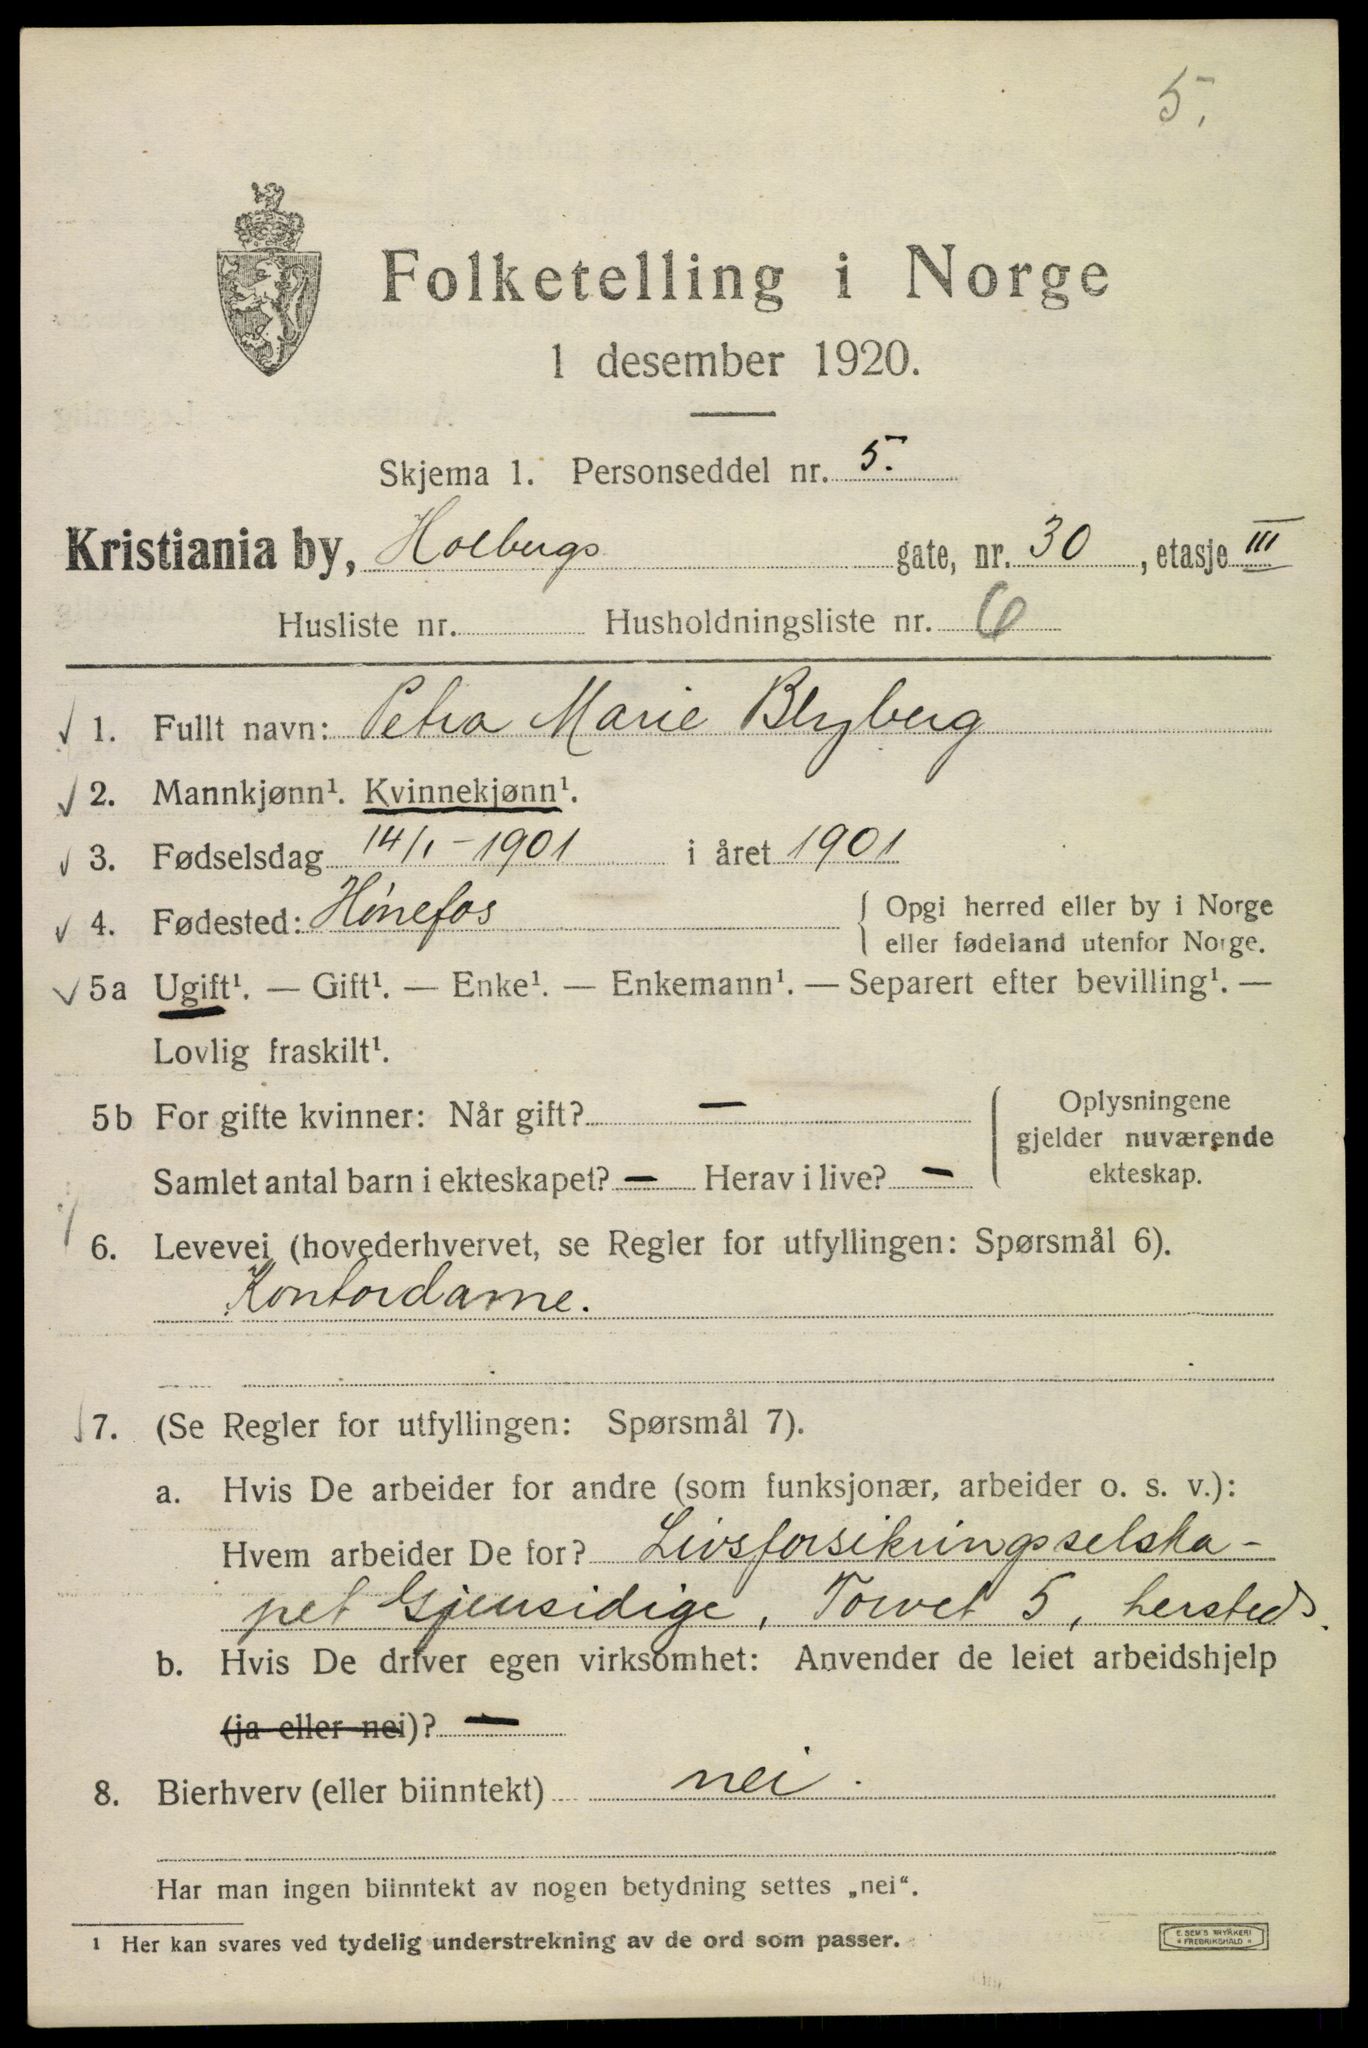 5.
Folketelling i Norge
1 desember 1920.
Skjema 1. Personseddel nr. 5.
Kristiania by, Holbergs gate, nr. 30, etasje III
Husliste nr. Husholdningsliste nr. 6
1. Fullt navn: Petra Marie Blyberg
2. Mannkjønn¹. Kvinnekjønn¹.
3. Fødselsdag 14/1-1901 i året 1901
4. Fødested: Hønefos { Opgi herred eller by i Norge
eller fødeland utenfor Norge.
5a Ugift¹. — Gift¹. — Enke¹. — Enkemann¹. — Separert efter bevilling¹. —
Lovlig fraskilt¹.
5b For gifte kvinner: Når gift? —
Samlet antal barn i ekteskapet? — Herav i live? —
Oplysningene
gjelder nuværende
ekteskap.
6. Levevei (hovederhvervet, se Regler for utfyllingen: Spørsmål 6).
Kontordame.
7. (Se Regler for utfyllingen: Spørsmål 7).
a. Hvis De arbeider for andre (som funksjonær, arbeider o. s. v.):
Hvem arbeider De for? Livsforsikringsselska-
pet Gjensidige, Torvet 5, hersteds.
b. Hvis De driver egen virksomhet: Anvender de leiet arbeidshjelp
(ja eller nei)? —
8. Bierhverv (eller biinntekt) nei.
Har man ingen biinntekt av nogen betydning settes „nei“.
1 Her kan svares ved tydelig understrekning av de ord som passer.
E. SEM'S TRYKKERI
* FREDRIKSHALD *